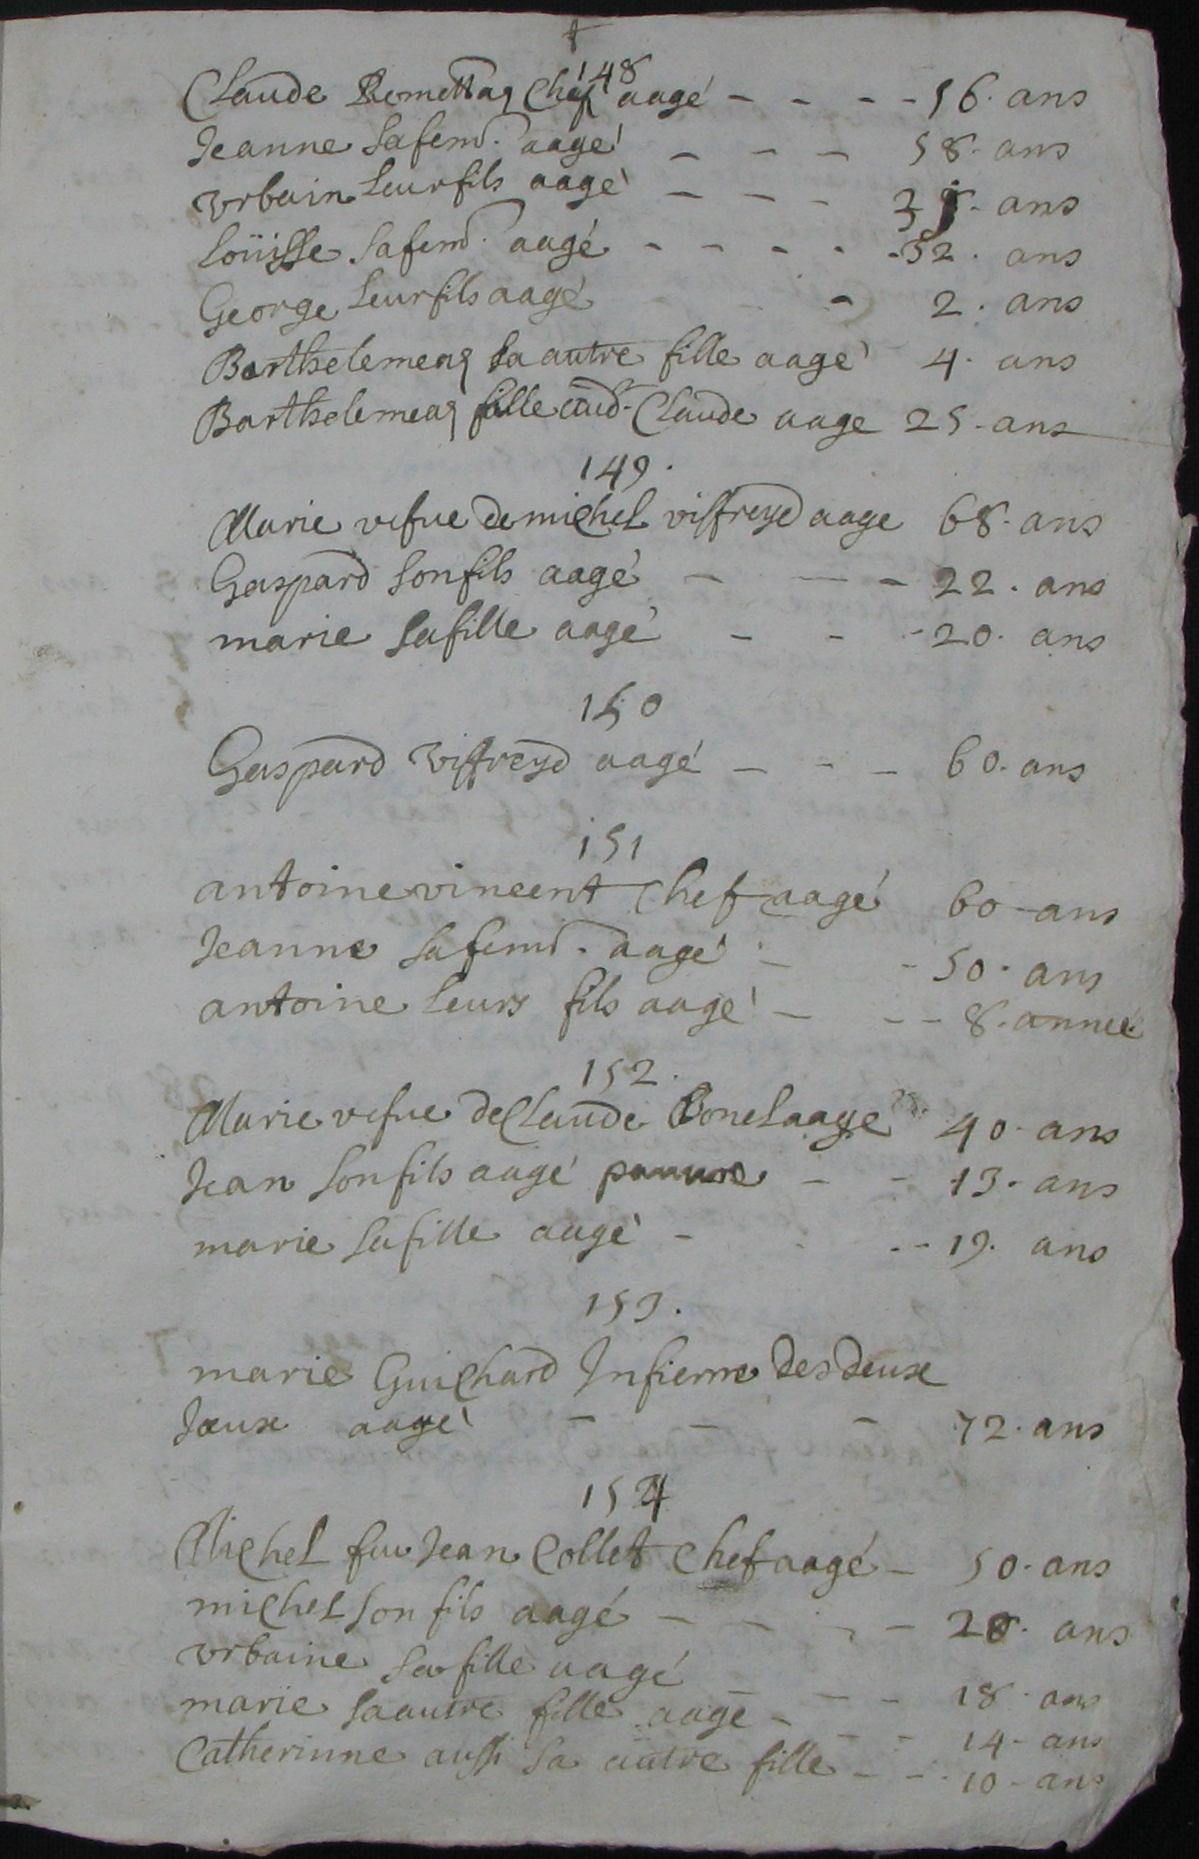 148
Claude chef aagé - - - - 56. ans
Jeanne sa fem̄. aagé - - - 58. ans
Vrbain leur fils aagé - - - ans
Loüisse sa fem̄. aagé - - - - 32. ans
George leur fils aagé - 2. ans
Barthelemeaz sa autre fille aagé 4. ans
Barthelemeaz fille dud. Claude aage 25. ans
149.
Marie vefue de michel viffreyd aage 68. ans
Gaspard son fils aagé - - - 22. ans
marie sa fille aagé - - - 20. ans
150
Gaspard Viffreyd aagé - - - 60. ans
151
antoine vincent chef aagé 60 ans
Jeanne sa fem̄. aagé - - 50. ans
antoine leurs fils aagé - - - 8. année
152.
Marie vefue de Claude Bonel aage 40. ans
Jean son fils aagé pauure - - 13. ans
marie sa fille aagé - - - - 19. ans
153.
marie Guichard Infierme des deux
Jeux aagé - - - 72. ans
154
Michel feu Jean Collet chef aagé - 50. ans
michel son fils aagé - - - - 28. ans
Vrbaine sa fille aagé - - - 18. ans
marie sa autre fille aage - - - 14. ans
Catherinne aussi sa autre fille - - 10. ans